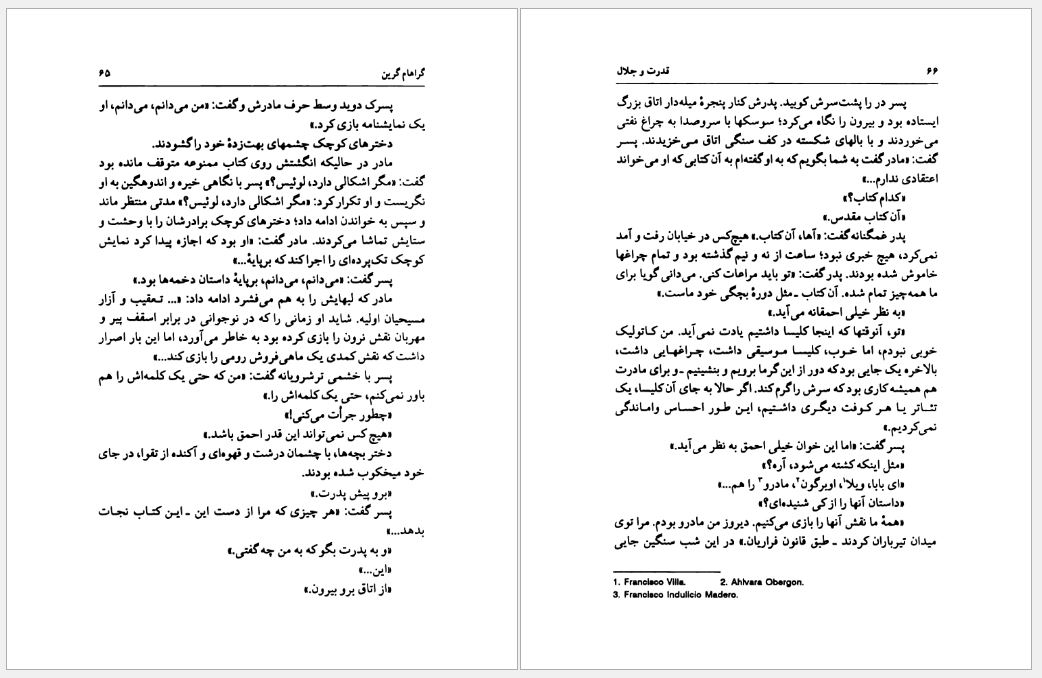 گراهام گرین
۶۵
پسرک دوید وسط حرف مادرش و گفت: «من می‌دانم، می‌دانم، او
یک نمایشنامه بازی کرد.»
دخترهای کوچک چشمهای بهت‌زدهٔ خود را گشودند.
مادر در حالیکه انگشتش روی کتاب ممنوعه متوقف مانده بود
گفت: «مگر اشکالی دارد، لوئیس؟» پسر با نگاهی خیره و اندوهگین به او
نگریست و او تکرار کرد: «مگر اشکالی دارد، لوئیس؟» مدتی منتظر ماند
و سپس به خواندن ادامه داد؛ دخترهای کوچک برادرشان را با وحشت و
ستایش تماشا می‌کردند. مادر گفت: «او بود که اجازه پیدا کرد نمایش
کوچک تک‌پرده‌ای را اجرا کند که برپایهٔ...»
پسر گفت: «می‌دانم، می‌دانم، برپایهٔ داستان دخمه‌ها بود.»
مادر که لبهایش را به هم می‌فشرد ادامه داد: «... تـعقیب و آزار
مسیحیان اولیه. شاید او زمانی را که در نوجوانی در برابر اسقف پیر و
مهربان نقش نرون را بازی کرده بود به خاطر می‌آورد، اما این بار اصرار
داشت که نقش کمدی یک ماهی‌فروش رومی را بازی کند...»
پسر با خشمی ترشرویانه گفت: «من که حتی یک کلمه‌اش را هم
باور نمی‌کنم، حتی یک کلمه‌اش را.»
«چطور جرأت می‌کنی!»
«هیچ کس نمی‌تواند این قدر احمق باشد.»
دختر بچه‌ها، با چشمان درشت و قهوه‌ای و آکنده از تقوا، در جای
خود میخکوب شده بودند.
«برو پیش پدرت.»
پسر گفت: «هر چیزی که مرا از دست این ـ ایـن کتـاب نجـات
بدهد...»
«و به پدرت بگو که به من چه گفتی.»
«این...»
«از اتاق برو بیرون.»
۶۶
قدرت و جلال
پسر در را پشت‌سرش کوبید. پدرش کنار پنجرهٔ میله‌دار اتاق بزرگ
ایستاده بود و بیرون را نگاه می‌کرد؛ سوسکها با سروصدا به چراغ نفتی
می‌خوردند و با بالهای شکسته در کف سنگی اتاق مـی‌خزیدند. پسـر
گفت: «مادر گفت به شما بگویم که به او گفته‌ام به آن کتابی که او می‌خواند
اعتقادی ندارم...»
«کدام کتاب؟»
«آن کتاب مقدس.»
پدر غمگنانه گفت: «آها، آن کتاب.» هیچ‌کس در خیابان رفت و آمد
نمی‌کرد، هیچ خبری نبود؛ ساعت از نه و نیم گذشته بود و تمام چراغها
خاموش شده بودند. پدر گفت: «تو باید مراعات کنی. می‌دانی گویا برای
ما همه‌چیز تمام شده. آن کتاب ـ مثل دورهٔ بچگی خود ماست.»
«به نظر خیلی احمقانه می‌آید.»
«تو، آنوقتها که اینجا کلیسا داشتیم یادت نمی‌آید. من کـاتولیک
خوبی نبودم، اما خـوب، کلیسـا مـوسیقی داشت، چـراغهـایی داشت،
بالاخره یک جایی بود که دور از این گرما برویم و بنشینیم ـ و برای مادرت
هم همیشه کاری بود که سرش را گرم کند. اگر حالا به جای آن کلیسا، یک
تئـاتر یـا هـر کـوفت دیگـری داشتیـم، ایـن طـور احسـاس وامـاندگی
نمی‌کردیم.»
پسر گفت: «اما این خوان خیلی احمق به نظر می‌آید.»
«مثل اینکه کشته می‌شود، آره؟»
«ای بابا، ویلا۱، اوبرگون۲، مادرو۳ را هم...»
«داستان آنها را از کی شنیده‌ای؟»
«همهٔ ما نقش آنها را بازی می‌کنیم. دیروز من مادرو بودم. مرا توی
میدان تیرباران کردند ـ طبق قانون فراریان.» در این شب سنگین جایی
1. Francisco Villa. 2. Ahlvara Obergon.
3. Francisco Indulicio Madero.